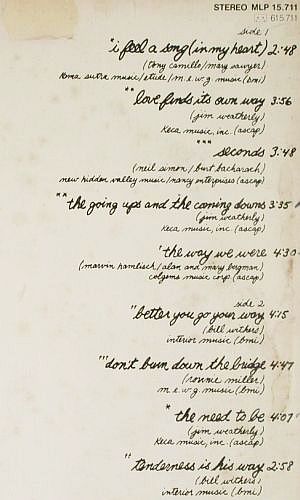 STEREO MLP 15.711
615.711
side 1
*i feel a song (in my heart) 2:48
(tony camillo/mary sawyer)
kama sutra music/etude/m.e.w.g. music (bmi)
**love finds its own way 3:56
(jim weatherly)
keca music, inc. (ascap)
***seconds 3:48
(neil simon/burt bacharach)
new hidden valley music/nancy enterprises (ascap)
**the going ups and the coming downs 3:35
(jim weatherly)
keca music, inc (ascap)
'the way we were 4:30
(marvin hamlisch/alan and mary bergman)
colgems music corp. (ascap)
side 2
"better you go your way 4:15
(bill withers)
interior music (bmi)
'''don't burn down the bridge 4:47
(ronnie miller)
m.e.w.g. music (bmi)
*the need to be 4:07
(jim weatherly)
keca music, inc. (ascap)
"tenderness is his way 2:58
(bill withers)
interior music (bmi)